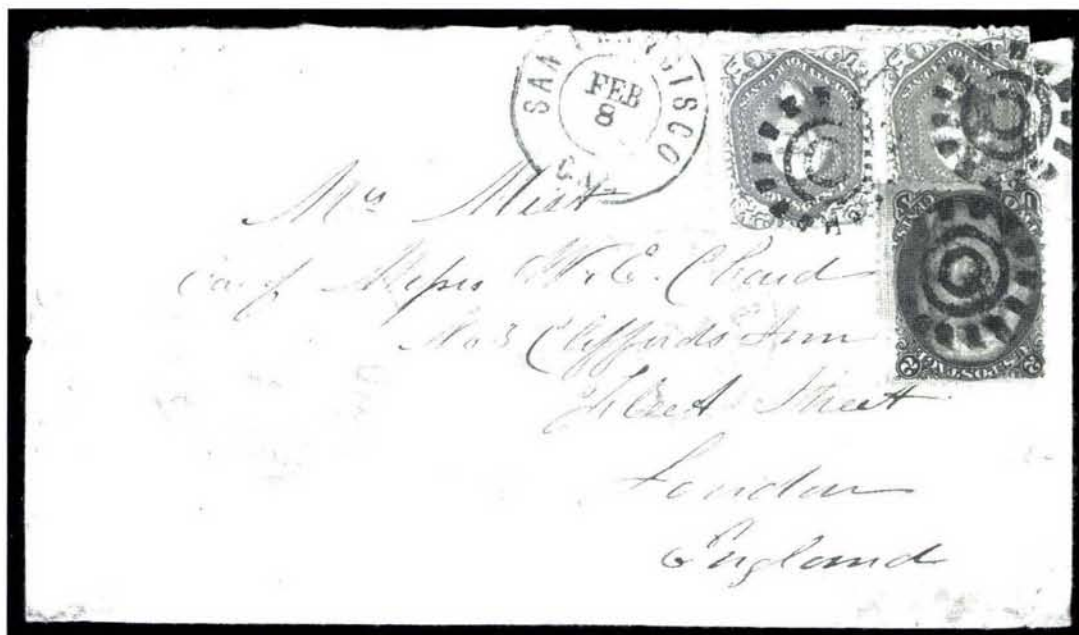 SAN FRANCISCO
FEB
8
CAL.
Mrs Mist
care of Messrs W. E. Chard
No 3 Cliffords Inn
Fleet Street
London
England
U.S. POSTAGE